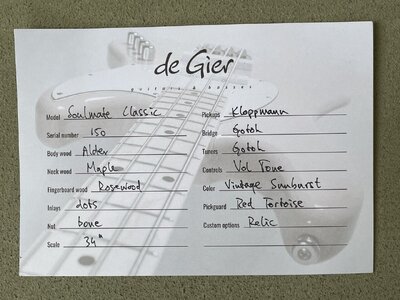 de Gier
guitars & basses
Model Soulmate Classic
Serial number 150
Body wood Alder
Neck wood Maple
Fingerboard wood Rosewood
Inlays dots
Nut bone
Scale 34"
Pickups Kloppmann
Bridge Gotoh
Tuners Gotoh
Controls Vol Tone
Color Vintage Sunburst
Pickguard Red Tortoise
Custom options Relic